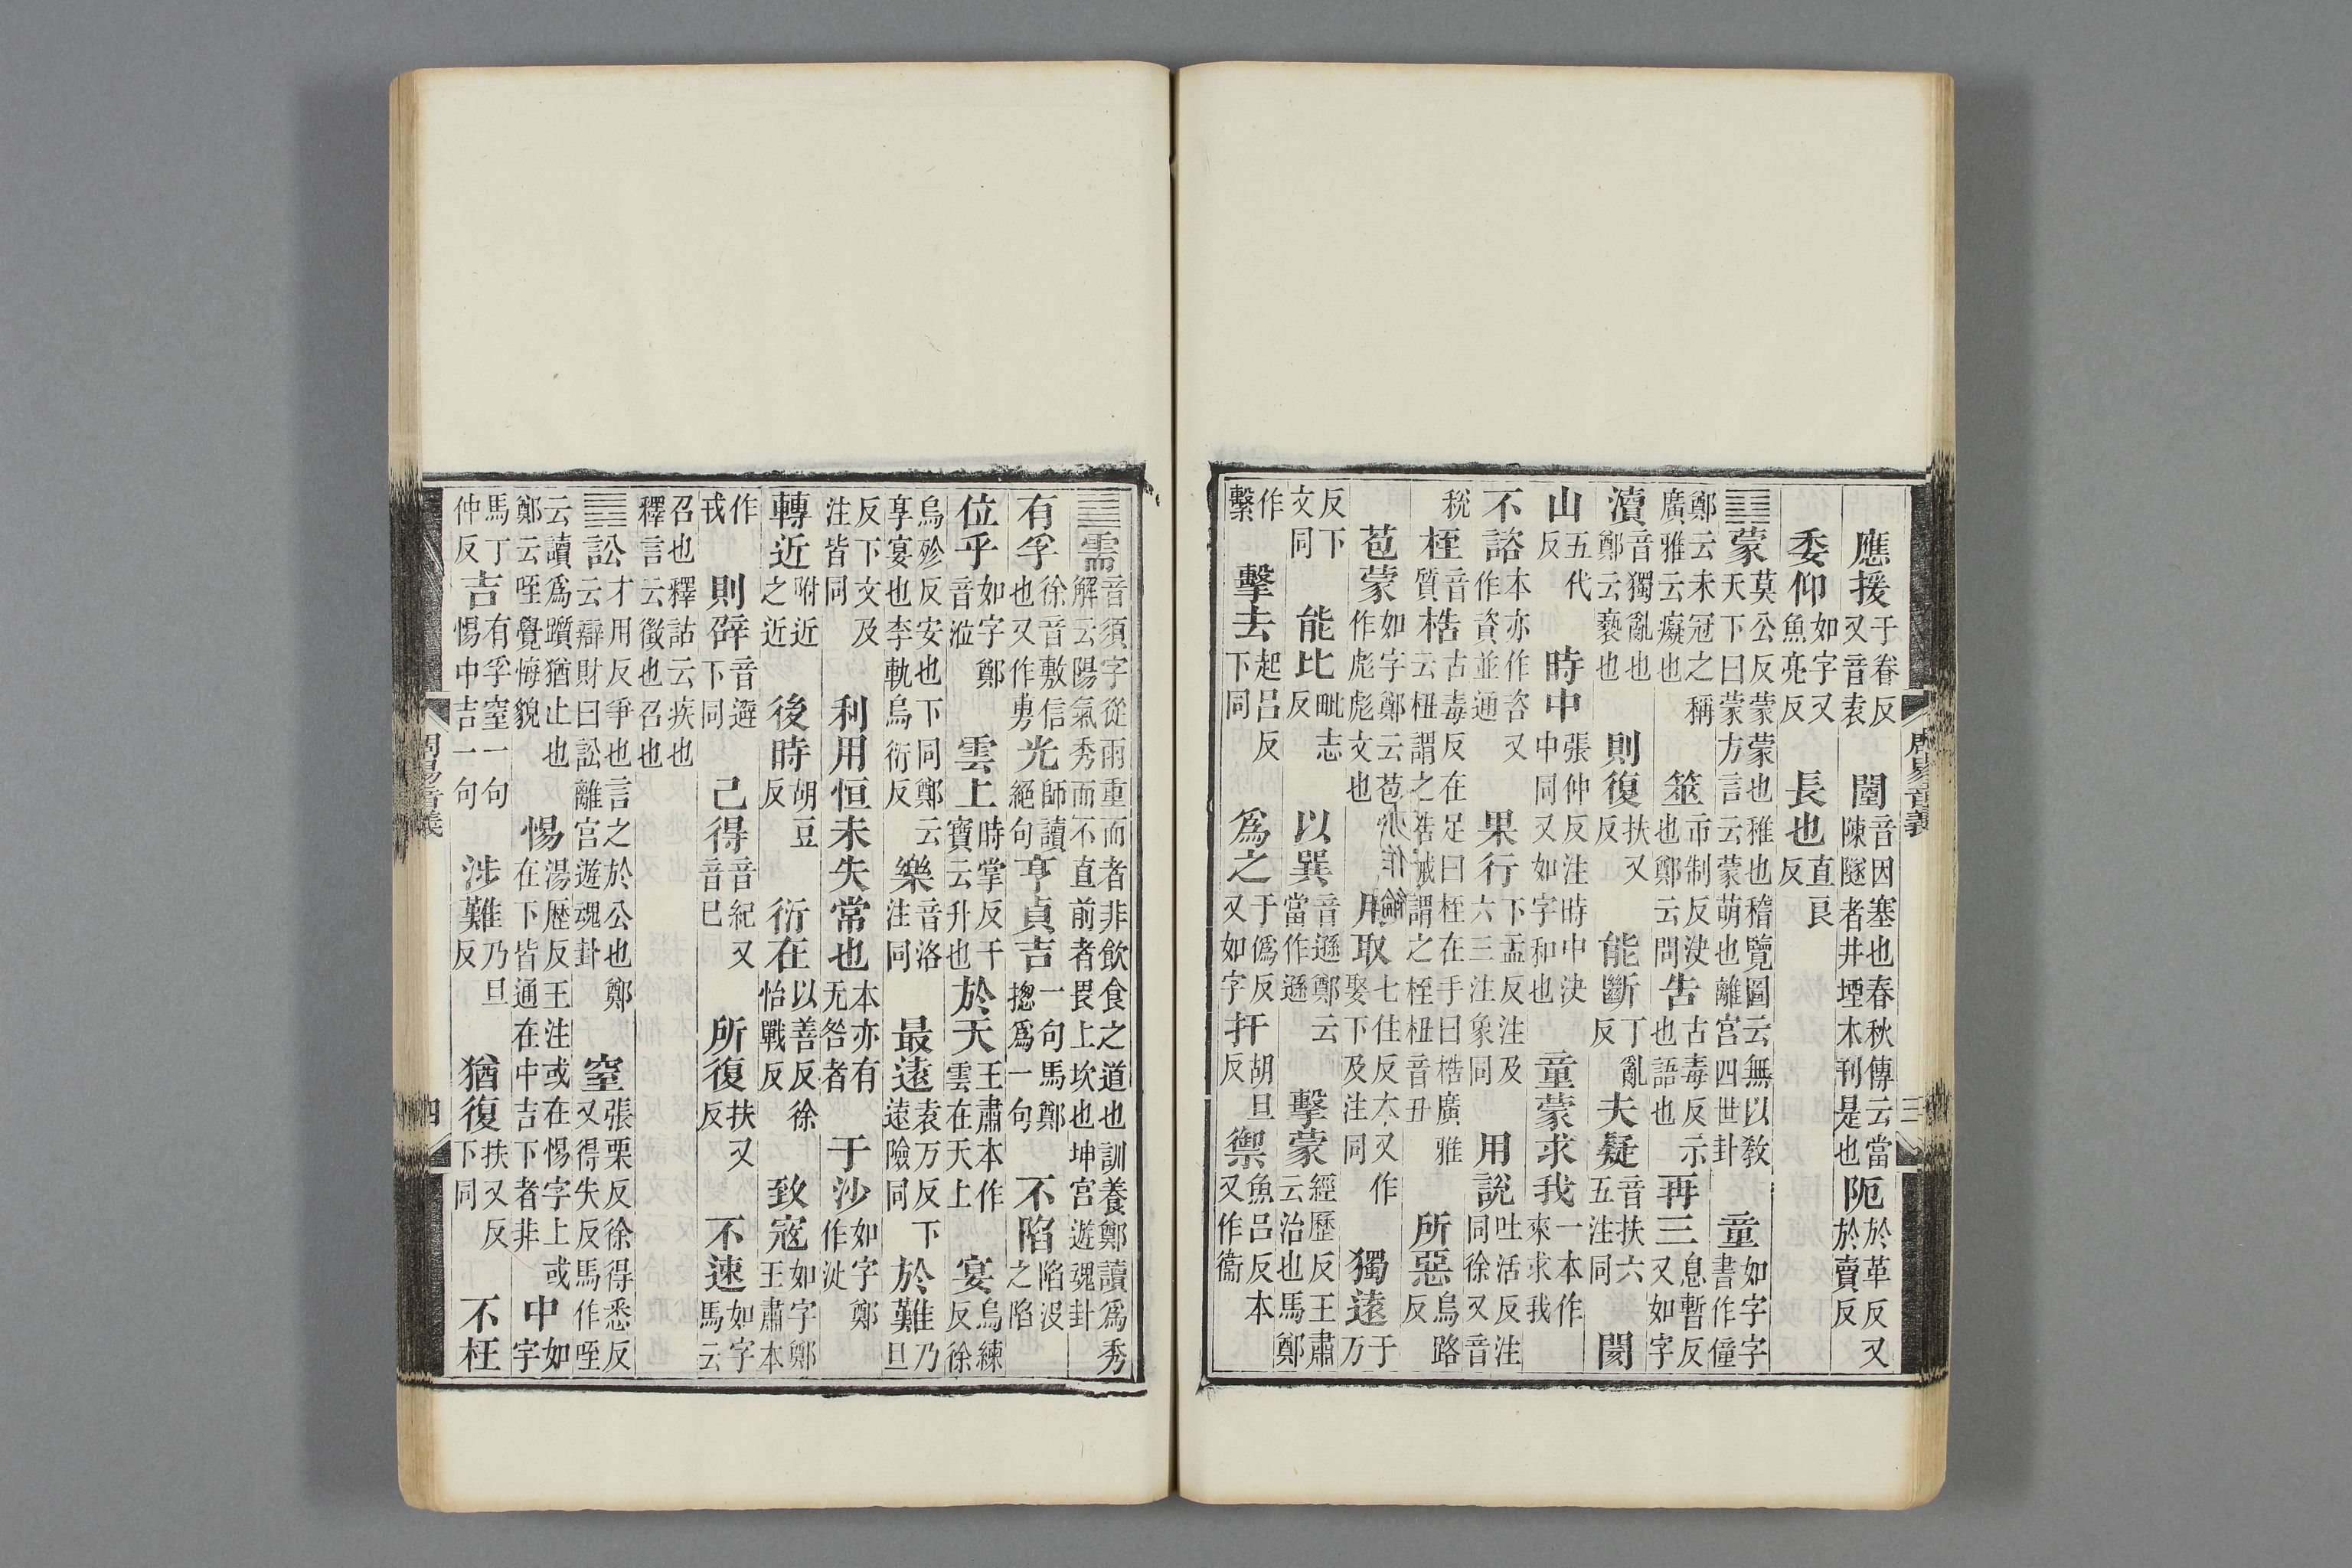 應援于眷反又音袁 闉音因塞也春秋傳云當陳隧者井堙木刊是也 阨於革反又於賣反
委仰如字又魚亮反 長也直良反
䷃蒙莫公反蒙蒙也稚也稽覽圖云無以敎天下曰蒙方言云蒙萌也離宮四世卦 童如字字書作僮
鄭云未冠之稱廣雅云癡也 筮市制反決也鄭云問 告古毒反示也語也 再三息暫反又如字
瀆音獨亂也鄭云褻也 則復扶又反 能斷丁亂反 夫疑音扶六五注同 閡
山五代反 時中張仲反注時中決中同又如字和也 童蒙求我一本作來求我
不諮本亦作咨又作資並通 果行下孟反注及六三注象同 用說吐活反注同徐又音
稅 桎音質 梏古毒反在足曰桎在手曰梏廣雅云杻謂之梏械謂之桎杻音丑 所惡烏路反
苞蒙如字鄭云苞作彪彪文也 用取七住反本又作娶下及注同 獨遠于万
反下文同 能比毗志反 以巽音遜鄭云當作遜 擊蒙經歷反王肅云治也馬鄭
作繫 擊去起呂反下同 爲之于僞反又如字 扞胡旦反 禦魚呂反本又作衞
周易音義
三
䷄需音須字從雨重而者非飲食之道也訓養鄭讀爲秀解云陽氣秀而不直前者畏上坎也坤宮遊魂卦
有孚徐音敷信也又作旉 光師讀絕句 亨貞吉一句馬鄭揔爲一句 不陷陷没之陷
位乎如字鄭音涖 雲上時掌反干寶云升也 於天王肅本作雲在天上 宴烏練反徐
烏殄反安也下同鄭云享宴也李軌烏衍反 樂音洛注同 最遠袁万反下遠險同 於難乃旦
反下文及注皆同 利用恒未失常也本亦有无咎者 于沙如字鄭作沚
轉近附近之近 後時胡豆反 衍在以善反徐怡戰反 致寇如字鄭王肅本
作戎 則辟音避下同 己得音紀又音巳 所復扶又反 不速如字馬云
召也釋詁云疾也釋言云徵也召也
䷅訟才用反爭也言之於公也鄭云辯財曰訟離宮遊魂卦 窒張栗反徐得悉反又得失反馬作咥
云讀爲躓猶止也鄭云咥覺悔貌 惕湯歷反王注或在惕字上或在下皆通在中吉下者非 中如字
馬丁仲反 吉有孚窒一句惕中吉一句 涉難乃旦反 猶復扶又反下同 不枉
周易音義
四